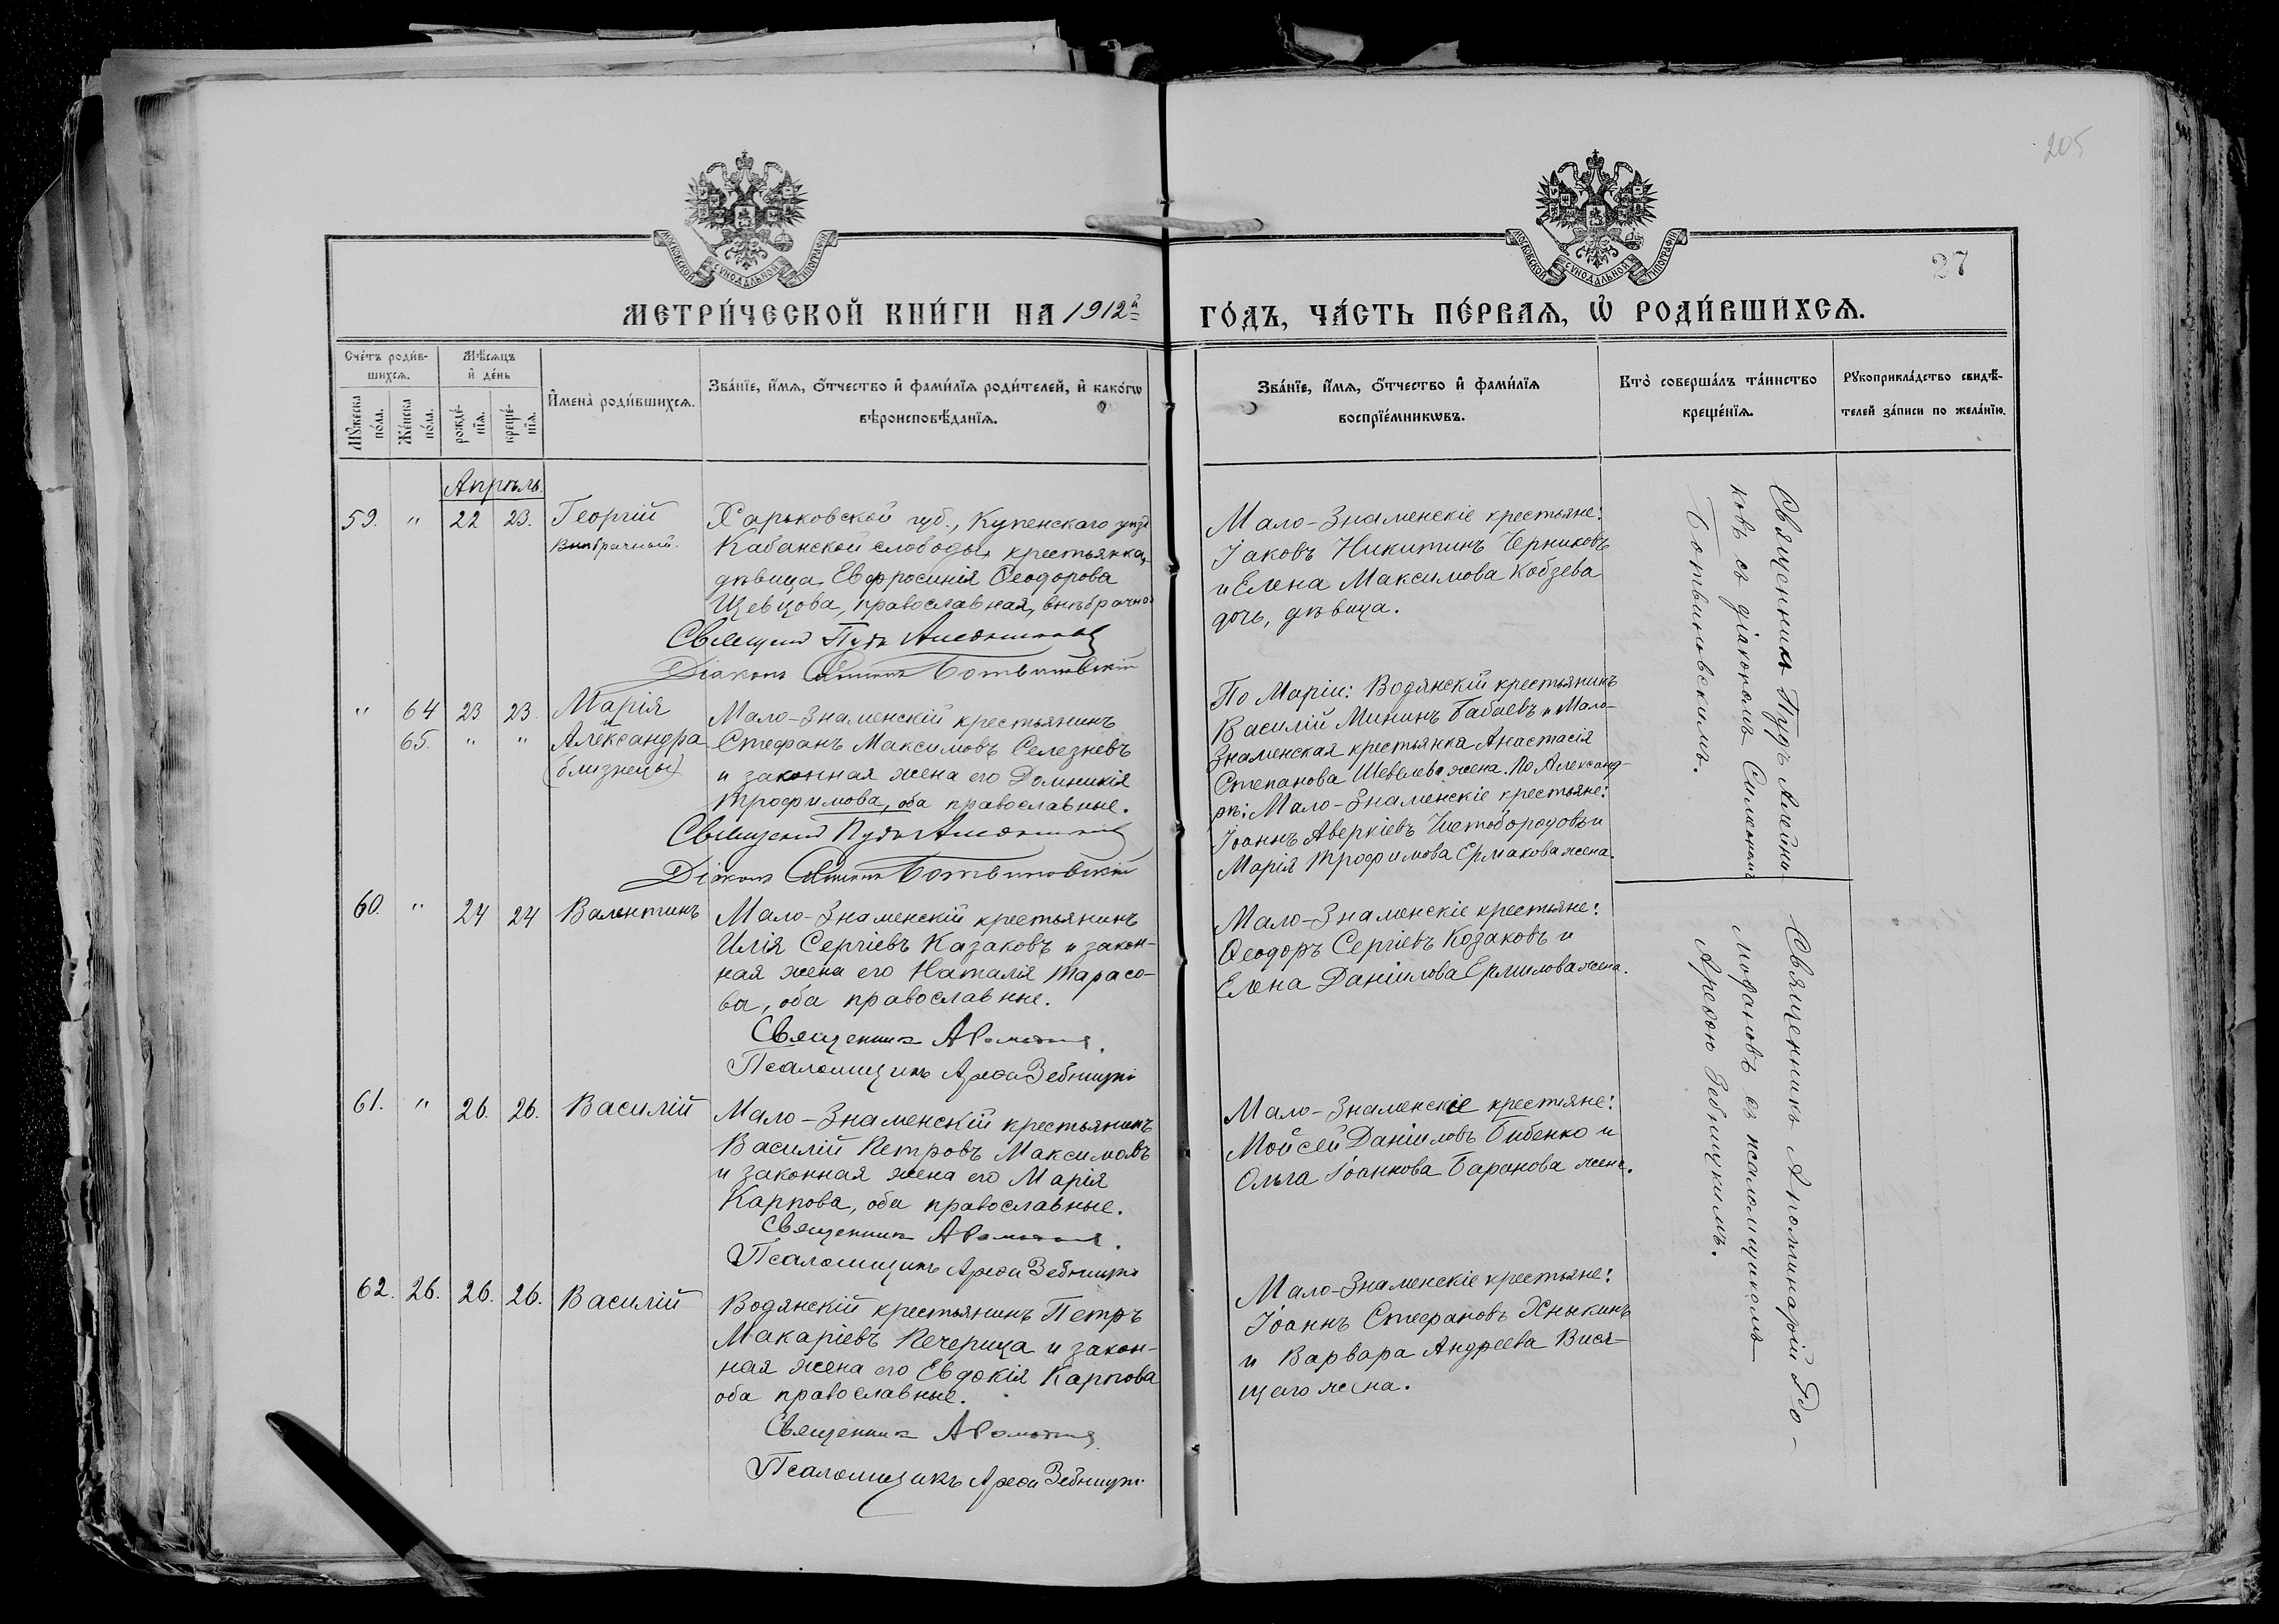 205
27
МОСКОВСКОЙ СѴНОДАЛЬНОЙ ТИПОГРАФІИ
МОСКОВСКОЙ СѴНОДАЛЬНОЙ ТИПОГРАФІИ
МЕТРИ́ЧЕСКОЙ КНИ́ГИ НА 1912й
ГО́ДЪ, ЧА́СТЬ ПЕ́РВАѦ, Ѡ҆ РОДИ́ВШИХСѦ.
Сче́тъ роди́в-
шихсѧ.
Мꙋ́жеска
по́ла.
Же́нска
по́ла.
Мѣ́сѧцъ
и҆ де́нь
рожде́-
нїѧ.
креще́-
нїѧ.
И҆мена̀ роди́вшихсѧ.
Зва́нїе, и҆́мѧ, ѻ҆́тчество и҆ фами́лїѧ роди́телей, и҆ како́гѡ
вѣроисповѣ́данїѧ.
Зва́нїе, и҆́мѧ, ѻ҆́тчество и҆ фами́лїѧ
воспрїе́мникѡвъ.
Кто̀ соверша́лъ та́инство
креще́нїѧ.
Рꙋкоприкла́дство свидѣ́-
телей за́писи по жела́нїю.
Апрѣль.
59. " 22 23. Георгій
внѣбрачный.
Харьковской губ., Купенскаго уѣзд
Кабанской слободы, крестьянка,
дѣвица Евфросинія Ѳеодорова
Шевцова, православная, внѣбрачно
Священ Пудъ
Діаконъ Ботвиновскій
Мало-Знаменскіе крестьяне:
Іаковъ Никитинъ Черниковъ
и Елена Максимова Кобзева
дочь, дѣвица.
" 64 23 23. Марія
65. " " и Александра
(близнецы)
Мало-Знаменскій крестьянинъ
Стефанъ Максимовъ Селезневъ
и законная жена его Домникія
Трофимова, оба православные.
Священ Пудъ
Діаконъ Ботвиновскій
По Маріи: Водянскій крестьянинъ
Василій Мининъ Бабаевъ и Мало-
Знаменская крестьянка Анастасія
Степанова Шевелева жена. По Александ-
рѣ: Мало-Знаменскіе крестьяне:
Іоаннъ Аверкіевъ Чистобородовъ и
Марія Трофимова Ермакова жена.
Священникъ Пудъ Алейни-
ковъ съ діакономъ Симеономъ
Ботвиновскимъ.
60. " 24 24 Валентинъ
Мало-Знаменскій крестьянинъ
Илія Сергіевъ Казаковъ и закон-
ная жена его Наталія Тарасо-
ва, оба православные.
Священникъ А
Псаломщикъ Зебницкі
Мало-Знаменскіе крестьяне:
Ѳеодоръ Сергіевъ Козаковъ и
Елена Даніилова Ермилова жена.
61. " 26. 26. Василій
Мало-Знаменскій крестьянинъ
Василій Петровъ Максимовъ
и законная жена его Марія
Карпова, оба православные.
Священникъ А
Псаломщикъ Зебницкі
Мало-Знаменскіе крестяне:
Мойсей Даніиловъ Бибенко и
Ольга Іоаннова Баранова жена.
62. 26. 26. 26. Василій
Водянскій крестьянинъ Петръ
Макаріевъ Печерица и закон-
ная жена его Евдокія Карпова
оба православные.
Священникъ А
Псаломщикъ Зебницкі
Мало-Знаменскіе крестьяне:
Іоаннъ Стефановъ Хныкинъ
и Варвара Андреева Вися-
щаго жена.
Священникъ Аполлинарій Ро-
мъ съ псаломщикомъ
Зебницкимъ.